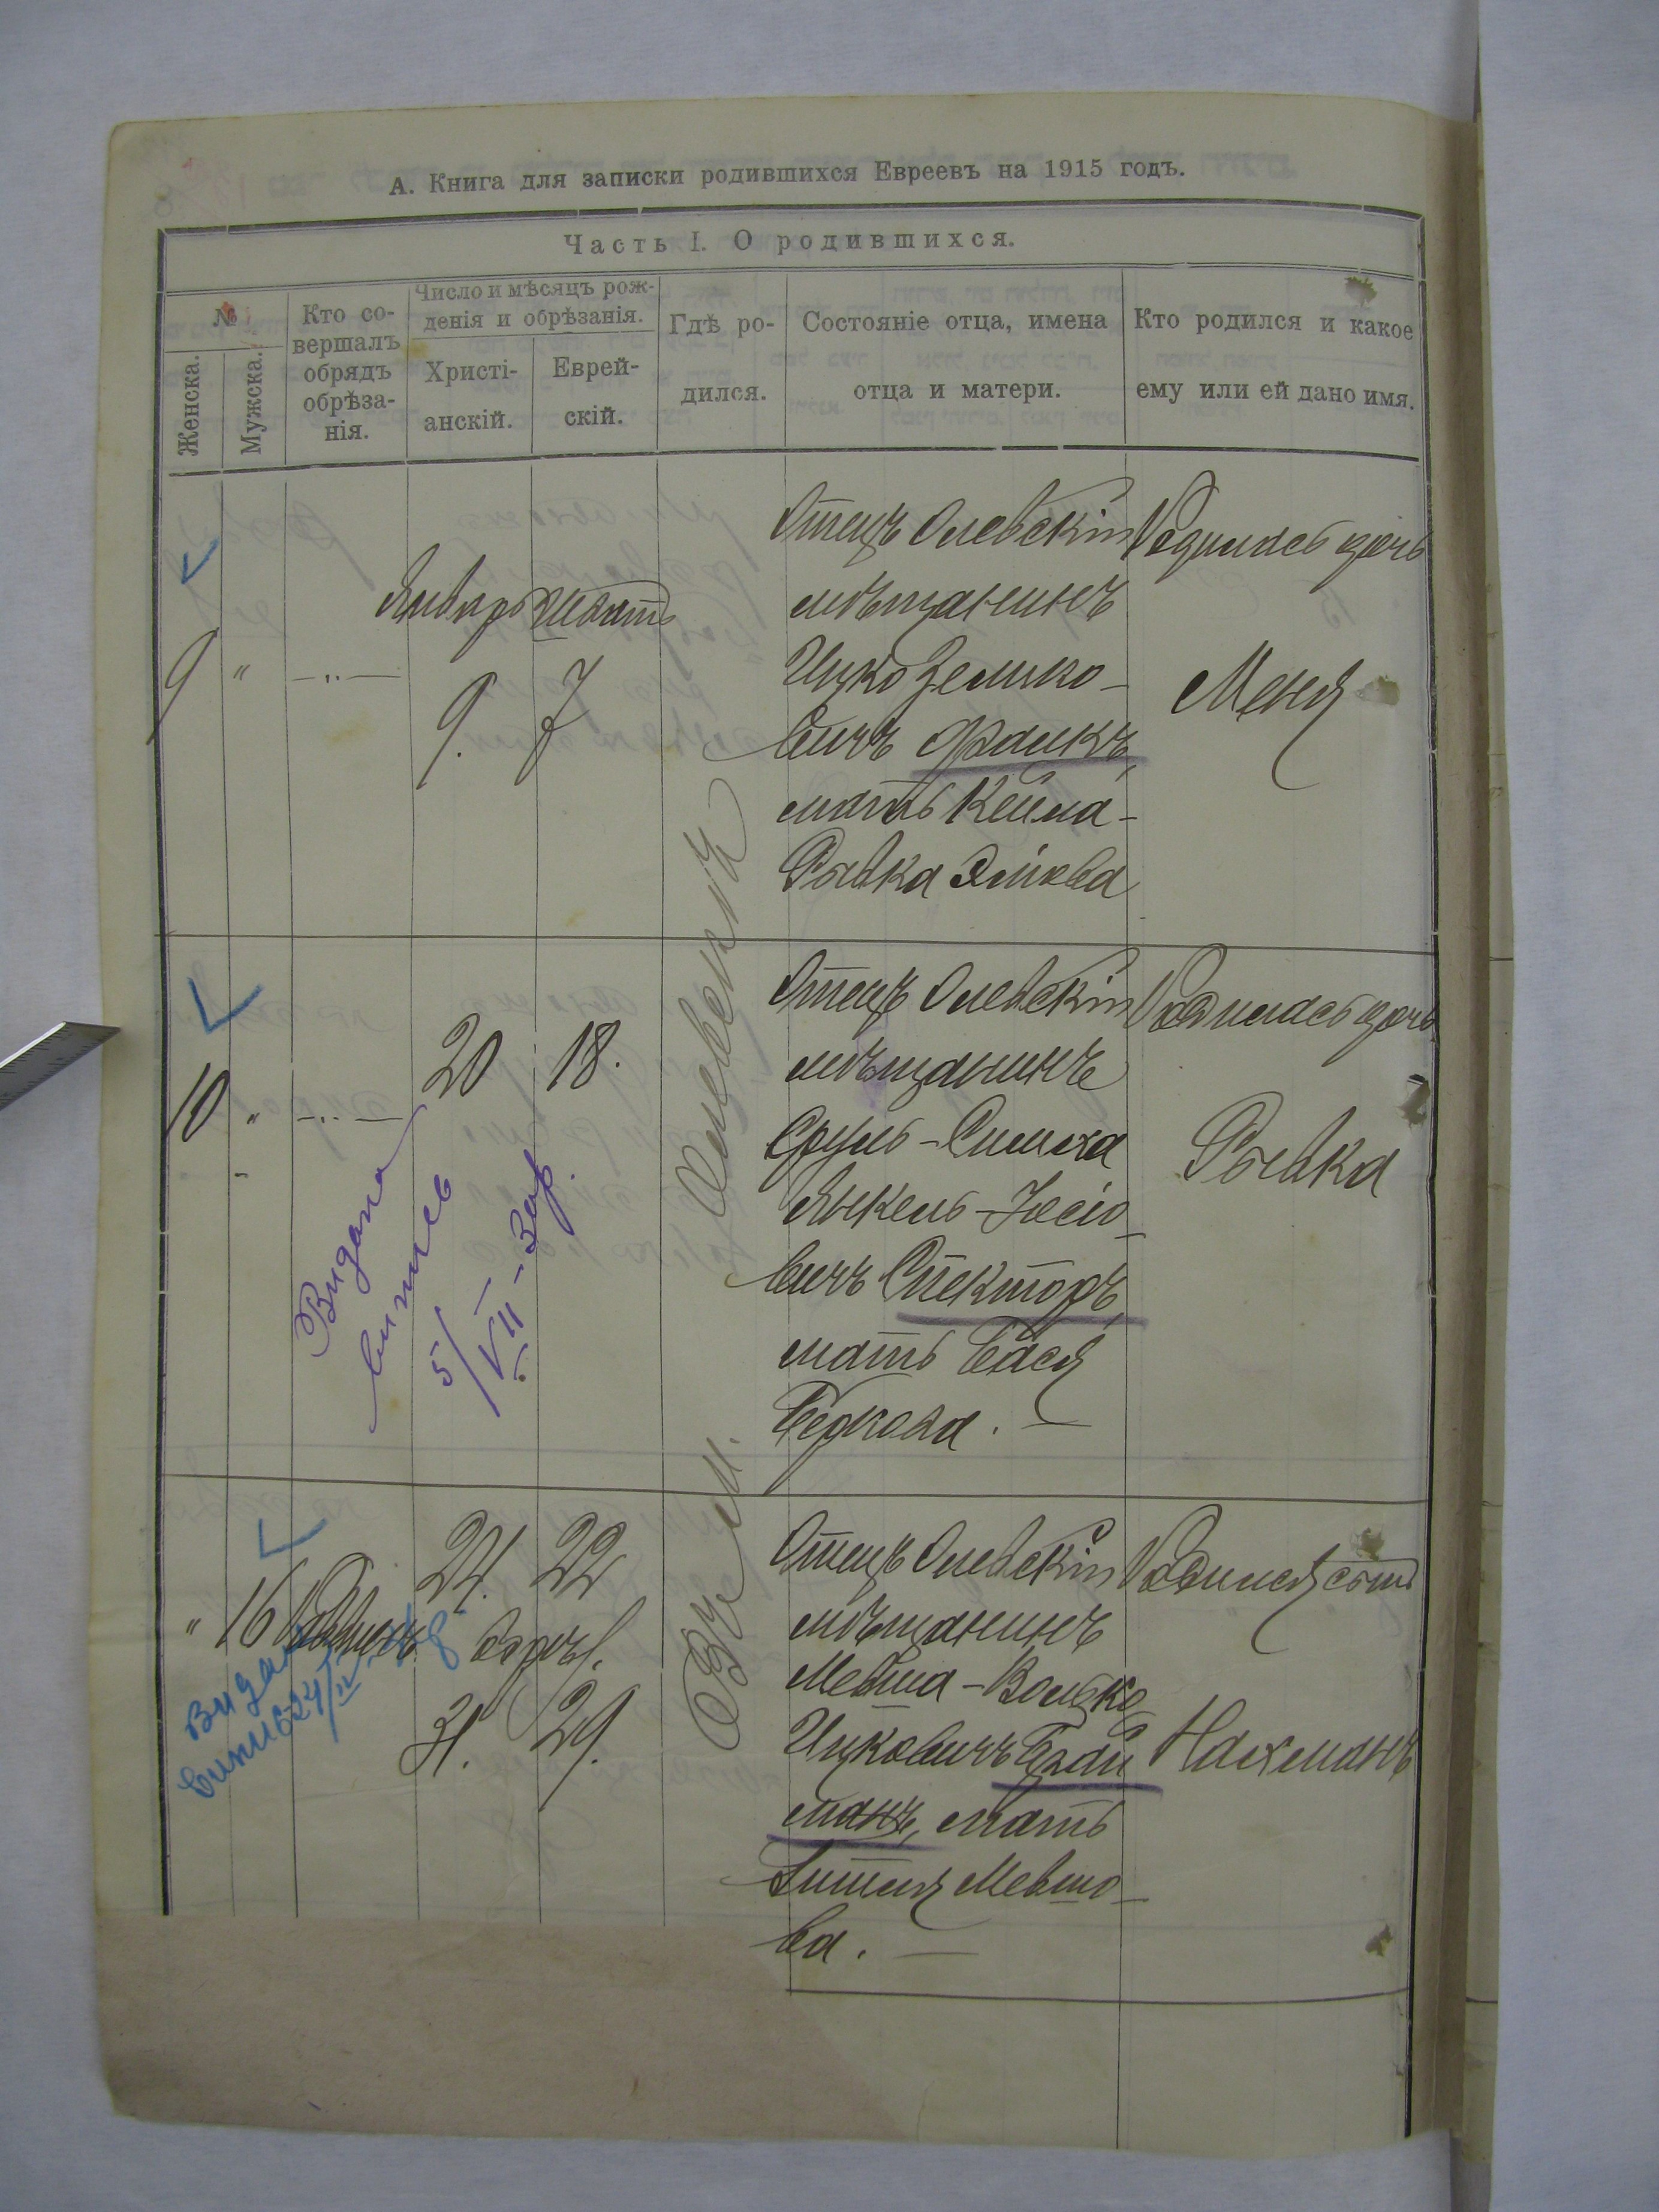 А. Книга для записки родившихся Евреевъ на 1915 годъ.
Часть I. О родившихся.
№
Женска.
Мужска.
Кто со-
вершалъ
обрядъ
обрѣза-
нія.
Число и мѣсяцъ рож-
денія и обрѣзанія.
Христі-
анскій.
Еврей-
скій.
Гдѣ ро-
дился.
Состояніе отца, имена
отца и матери.
Кто родился и какое
ему или ей дано имя.
9 " —"—
Январь Шватъ
9. 7
Въ м. Олевскѣ
Отецъ Олевскій
мѣщанинъ
Ицко Зелико-
вичъ Франкъ,
мать Кейла-
Рывка Эліова
Родилась дочь
Меня
10 " —"—
20 18.
Видана
випись
5/VII – Загс
Отецъ Олевскій
мѣщанинъ
Сруль-Симха
Янкель-Іосіо-
вичъ Спекторъ,
мать Бася
Беркова. —
Родилась дочь
Рывка
" 16
24. 22
обрѣз.
31. 29.
Видана
випись 24/IV
Отецъ Олевскій
мѣщанинъ
Мевша-Волько
Ицковичъ Гай
манъ, мать
Гитля Мевшо-
ва. —
Родился сынъ
Нахманъ